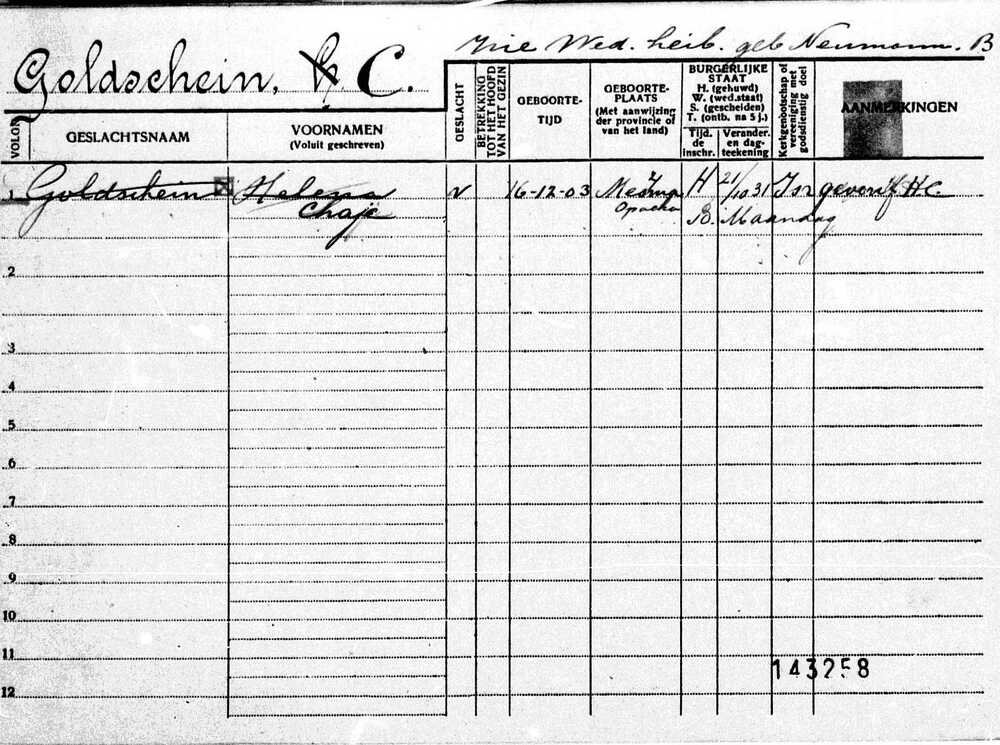 Goldschein, H C.
Wed. geb Neumann. B
VOLGN
GESLACHTSNAAM
VOORNAMEN
(Voluit geschreven)
GESLACHT
BETREKKING TOT HET HOOFD VAN HET GEZIN
GEBOORTE-
TIJD
GEBOORTE-
PLAATS
(Met aanwijzing
der provincie of
van het land)
BURGERLIJKE
STAAT
H. (gehuwd)
W. (wed.staat)
S. (gescheiden)
T. (ontb. na 5 j.)
Tijd.
de
inschr.
Verander.
en dag-
teekening
Kerkgenootschap of vereeniging met godsdienstig doel
AANMERKINGEN
1 Goldschein Helena V 16-12-03 H 21/10 31 Isr geverif. H.C.
Chaje Opocka Maandag
2
3
4
5
6
7
8
9
10
11
143258
12